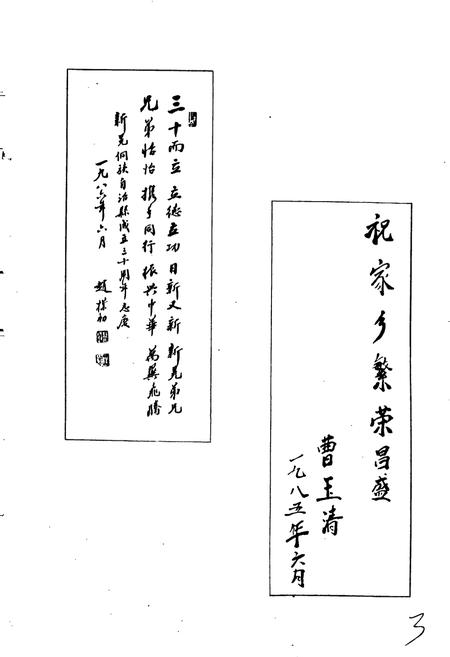 祝家乡繁荣昌盛
曹玉清
一九八五年六月
三十而立 立德立功 日新又新 新晃弟兄
兄弟怡怡 携手同行 振兴中华 万翼飞腾
新晃侗族自治县成立三十周年志庆
一九八六年六月 赵朴初
3